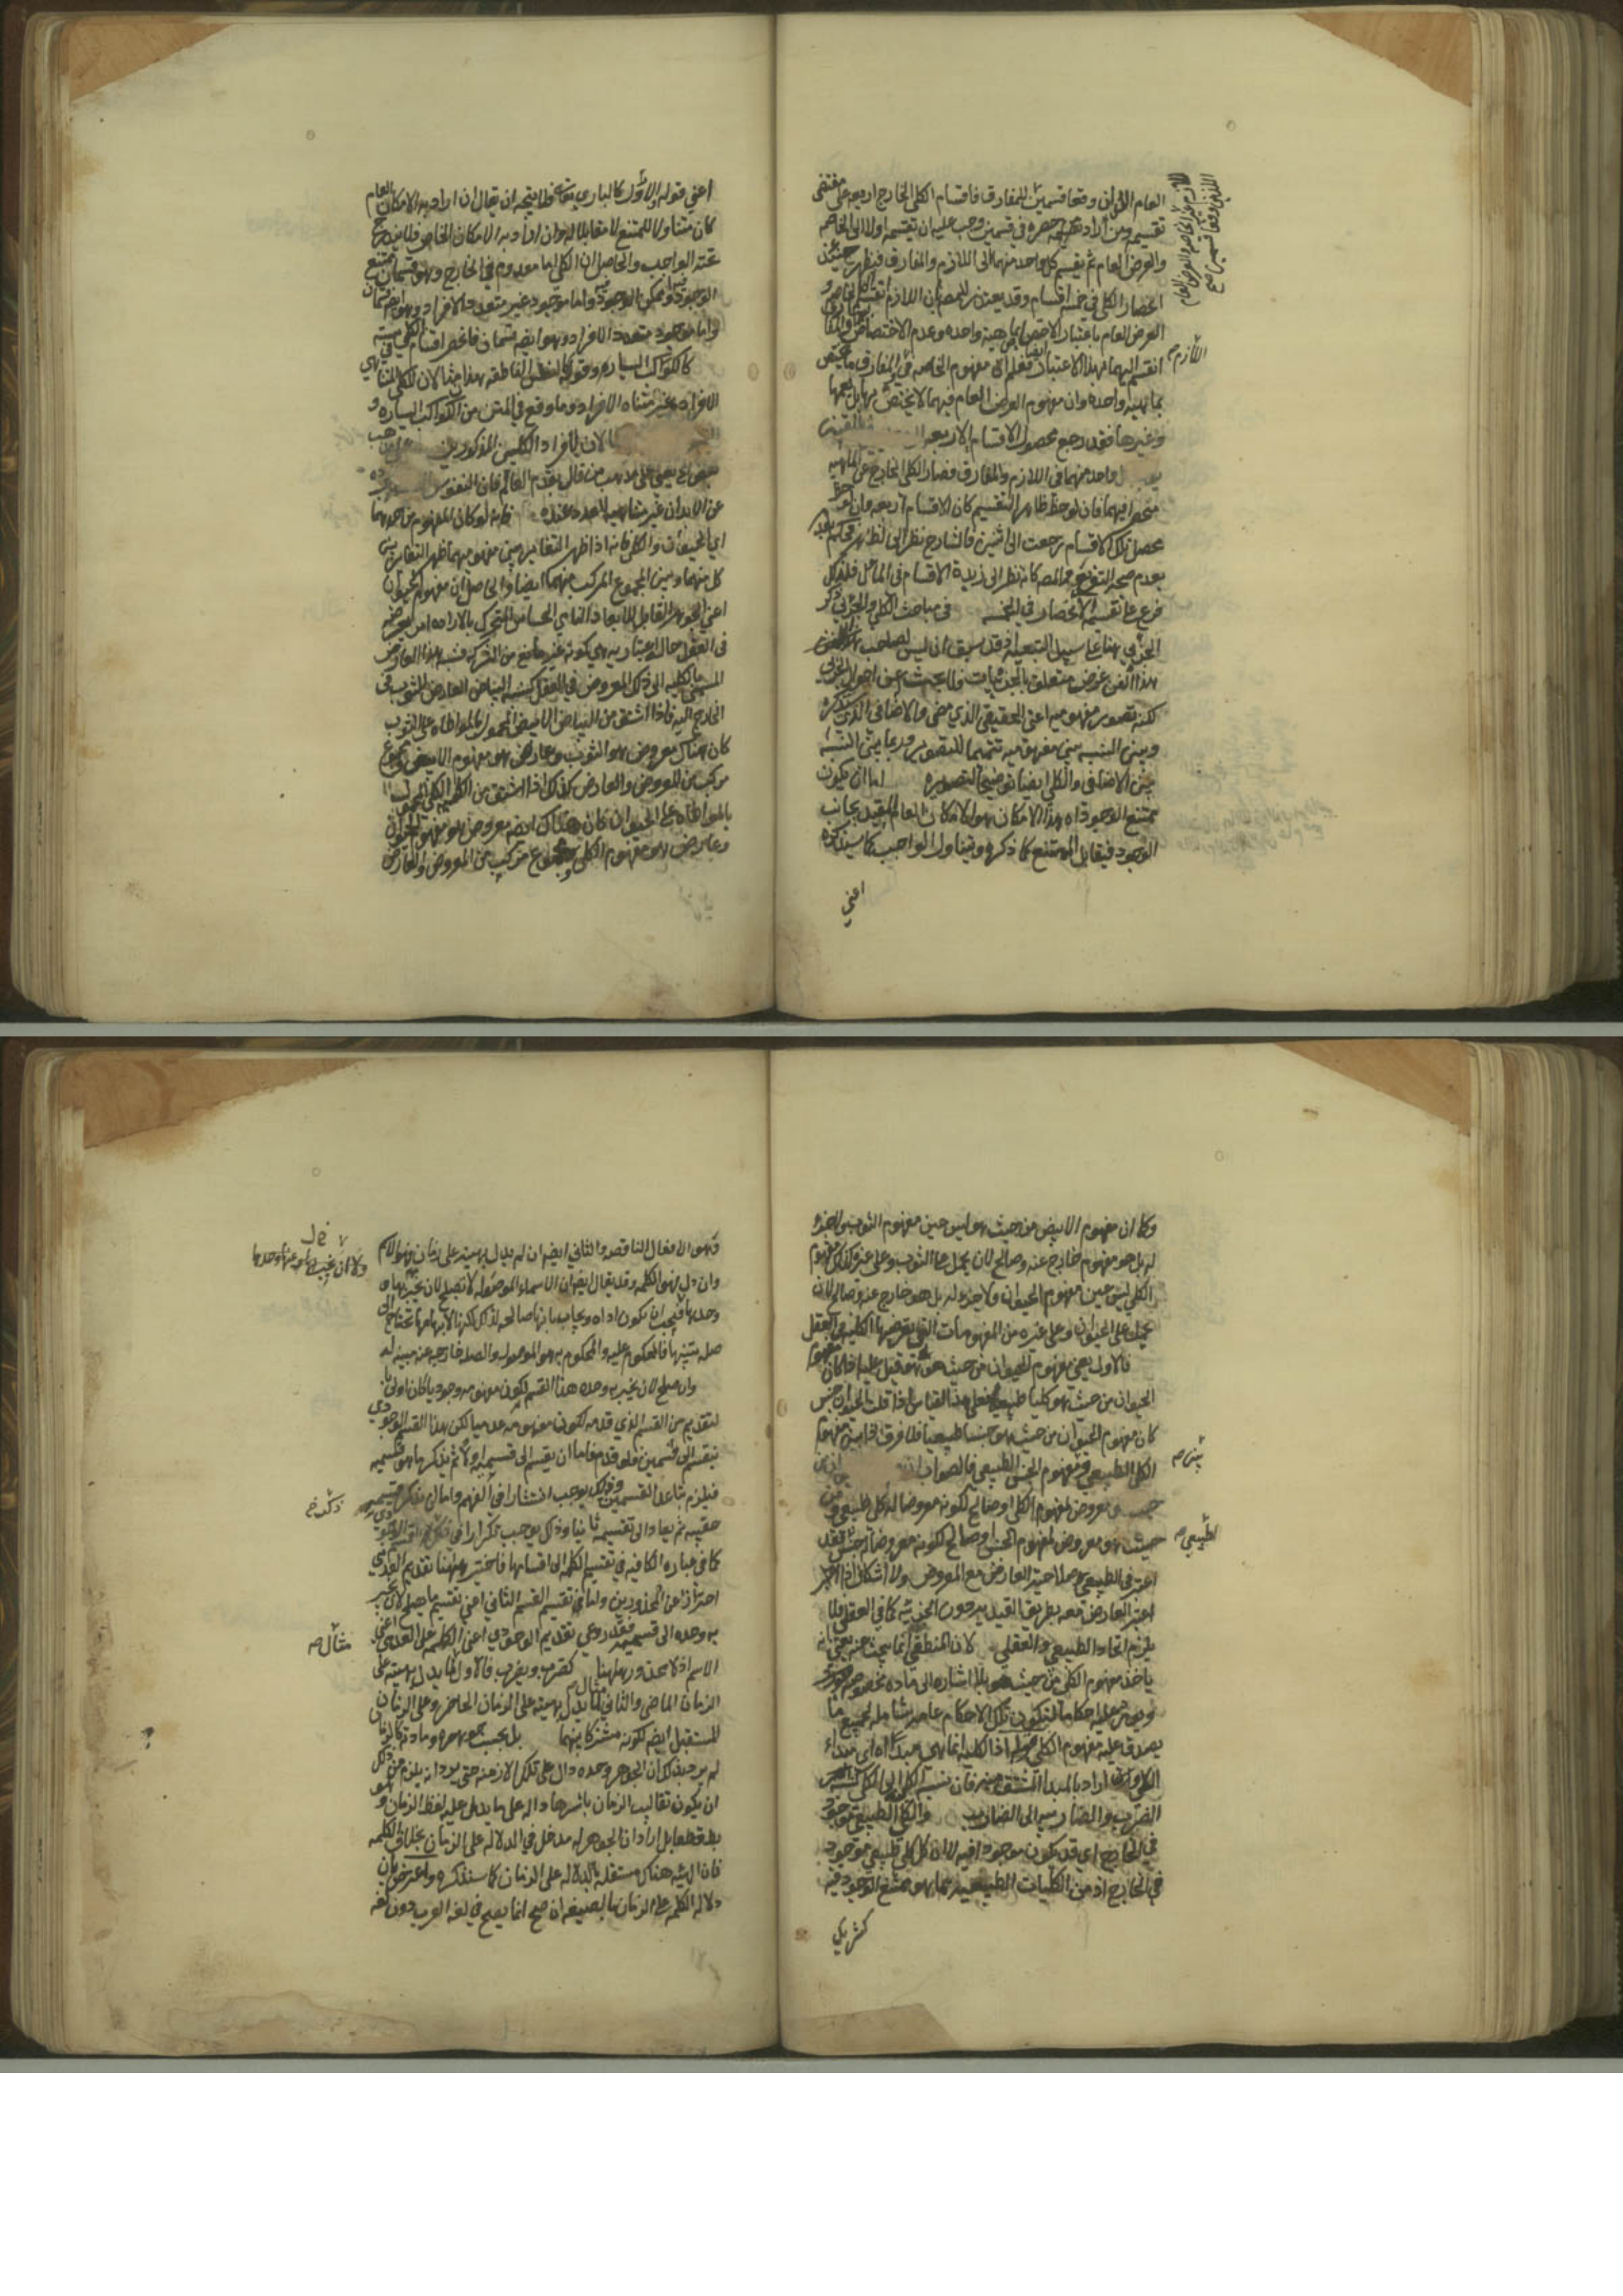 تقسيمه ومن أراد حصره في قسمين وجب عليه ان يقسمه اولا الى الخاصه
والعرض العام ثم يقسم كل واحد منهما الى اللازم والمفارق فيظهر حينئذ
انحصار الكلي في خمسة اقسام وقد يعتذر للمص بان اللازم انقسم الى الخاصه و
العرض العام باعتبار الاختصاص بماهية واحده وعدم الاختصاص والمفارق
انقسم اليهما بهذا الاعتبار فعلم ان مفهوم الخاصه في المفارق ما يختص
اللازم صح
بماهية واحده وان مفهوم العرض العام فيهما لا يختص بها بل يعمها
وغيرها فقد رجع محصول الاقسام الاربعه
واحد منهما في اللازم والمفارق فصار الكلي الخارج عن الماهيه
منحصرا فيهما فان لوحظ ظاهر التقسيم كان الاقسام اربعه وان
محصل تلك الاقسام رجعت الى اثنين فالشارح نظر الى الظاهر فحكم
بعدم صحة التفريع والمص كانه نظر الى زبدة الاقسام في المآل فلذلك
فرع على تقسيمه الانحصار في الخمسه في مباحث الكلي والجزئي ذكر
الجزئي ههنا على سبيل التبعية وقد سبق ان ليس لصاحب
هذا الفن غرض متعلق بالجزئيات ولا يبحث عن احوال الجزئي
لكنه تصور مفهوميه اعني الحقيقي الذي مضى والاضافي الذي
وبين النسبه بين مفهوميه تتميما للتصوير وربما بين النسبه
بين الاضافي والكلي ايضا توضيحا لتصويره اما ان يكون
ممتنع الوجود اه هذا الامكان هو الامكان العام المقيد بجانب
الوجود فيقابل الممتنع كما ذكره ويتناول الواجب كما سيذكره
اعني
اعني قوله والاول كالباري تعالى فلا يتجه ان يقال ان اراد به الامكان العام
كان متناولا للممتنع لا مقابلا له وان اراد به الامكان الخاص فلا يندرج
تحته الواجب والحاصل ان الكلي اما معدوم في الخارج وهو قسمان ممتنع
الوجود وممكن الوجود واما موجود غير متعدد الافراد وهو ايضا قسمان
واما موجود متعدد الافراد وهو ايضه قسمان فانحصر اقسام الكلي في سته
كالكواكب السياره وقوله كالنفس الناطقه هذان مثالان للكلي المتناهي
الافراد وغير متناه الافراد وما وقع في المتن من الكواكب السياره و
لافراد الكليين المذكورين
بعض يعني على مذهب من قال بقدم العالم فان النفوس
عن الابدان غير متناهيه العدد عنده فانه لو كان المفهوم من احدهما
اي الحيوان والكلي فانه اذا ظهر التغاير بين مفهوميهما ظهر التغاير بين
كل منهما وبين المجموع المركب منهما ايضا والحاصل ان مفهوم الحيوان
اعني الجوهر القابل للابعاد النامي الحساس المتحرك بالاراده امر يعرضه
في العقل حالة اعتباريه هي كونه غير مانع من الشركه فنسبة هذا العارض
المسمى بالكليه الى ذلك المعروض في العقل كنسبة البياض العارض للثوب في
الخارج اليه فاذا اشتق من البياض الابيض المحمول بالمواطاه على الثوب
كان هناك معروض هو الثوب وعارض هو مفهوم الابيض ومجموع
مركب من المعروض والعارض كذلك اذا اشتق من الكليه الكلي المحمول
بالمواطاه على الحيوان كان هناك ايضه معروض هو مفهوم الحيوان
وعارض هو مفهوم الكلي ومجموع مركب من المعروض والعارض
وكما ان مفهوم الابيض من حيث هو ليس عين مفهوم الثوب ولا جزء
له بل هو مفهوم خارج عنه وصالح لان يحمل على الثوب وعلى غيره كذلك مفهوم
الكلي ليس عين مفهوم الحيوان ولا جزء له بل هو خارج عنه وصالح لان
يحمل على الحيوان وعلى غيره من المفهومات التي يعرضها الكليه في العقل
فالاول يعني مفهوم الحيوان من حيث هو هو قيل عليه اذا كان مفهوم
الحيوان من حيث هو كليا طبيعيا فعلى هذا القياس اذا قلت الحيوان جنس
كان مفهوم الحيوان من حيث هو جنسا طبيعيا فلا فرق اذا بين مفهوم
الكلي الطبيعي ومفهوم الجنس الطبيعي فالصواب
معروض لمفهوم الكلي او صالح لكونه معروضا له كلي طبيعي ومن
حيث هو معروض لمفهوم الجنس او صالح لكونه معروضا له جنس فقد
الطبيعي صح
اعتبر في الطبيعي صلاحية العارض مع المعروض ولا اشكال اذا
اعتبر العارض معه بطريق القيد دون الجزئيه كما في العقلي فلا
يلزم اتحاد الطبيعي والعقلي لان المنطقي انما يبحث عنه يعني انه
ياخذ مفهوم الكلي من حيث هو بلا اشاره الى ماده مخصوصه
ويورد عليه احكاما لتكون تلك الاحكام عامه شامله لجميع ما
يصدق عليه مفهوم الكلي اذ الكليه انما هي مبدأ اه اي مبدأ
الكلي وان اراد بالمبدأ المشتق منه فان نسبة الكلي الى الكليه كنسبة
الضرب والضارب الى الضارب والكلي الطبيعي موجود
في الخارج اي قد يكون موجودا فيه لا ان كل كلي طبيعي موجود
في الخارج اذ من الكليات الطبيعيه ما هو ممتنع الوجود فيه
كشريك
فهو الافعال الناقصه والثاني ايضه ان لم يدل بهيئته على زمان فهو الاسم
وان دل فهو الكلمه وقد يقال ايضا ان الاسماء الموصوله لا تصلح لان يخبر بها
وحدها فيجب ان يكون اداه ويجاب بانها صالحه لذلك لكنها لابهامها تحتاج الى
صله تبينها فالمحكوم عليه والمحكوم به هو الموصول والصله خارجه عنه مبينه له
وان صلح لان يخبر به وحده هذا القسم لكون مفهومه وجوديا كان اولى
بالتقديم من القسم الذي قدمه لكون مفهومه عدميا لكن هذا القسم الوجودي
ينقسم الى قسمين فلو قدم فاما ان يقسم الى قسميه اولا ثم يذكر ما هو قسيمه
فيلزم تباعد القسمين وذلك يوجب انتشارا في الفهم واما ان يذكر قسيمه
عقيبه ثم يعاد الى تقسيمه ثانيا وذلك يوجب تكرارا في
كما في عبارة الكافيه في تقسيم الكلمه الى اقسامها فاختير ههنا تقديم العدمي
احترازا عن المحذورين واما في تقسيم القسم الثاني اعني تقسيم ما يصلح لان يخبر
به وحده الى قسميه فقد روعي تقديم الوجودي اعني الكلمه على العدمي اعني
مثال صح
الاسم اذ لا محذور ههنا كضرب ويضرب فالاول لما يدل بهيئته على
الزمان الماضي والثاني لما يدل بهيئته على الزمان الحاضر وعلى الزمان
المستقبل ايضه لكونه مشتركا بينهما بل بحسب جوهره ومادته كالزمان
لم يرد بذلك ان الجوهر وحده دال على تلك الازمنه حتى يرد انه يلزم من ذلك
ان يكون تقاليب الزمان باسرها داله على ما يدل عليه لفظ الزمان وهو
بط قطعا بل اراد ان الجوهر له مدخل في الدلاله على الزمان بخلاف الكلمه
فان الهيئه هناك مستقله بالدلاله على الزمان كما سنذكره واعترض بان
دلالة الكلمه على الزمان بالصيغه ان صح انما يصح في لغة العرب دون لغة